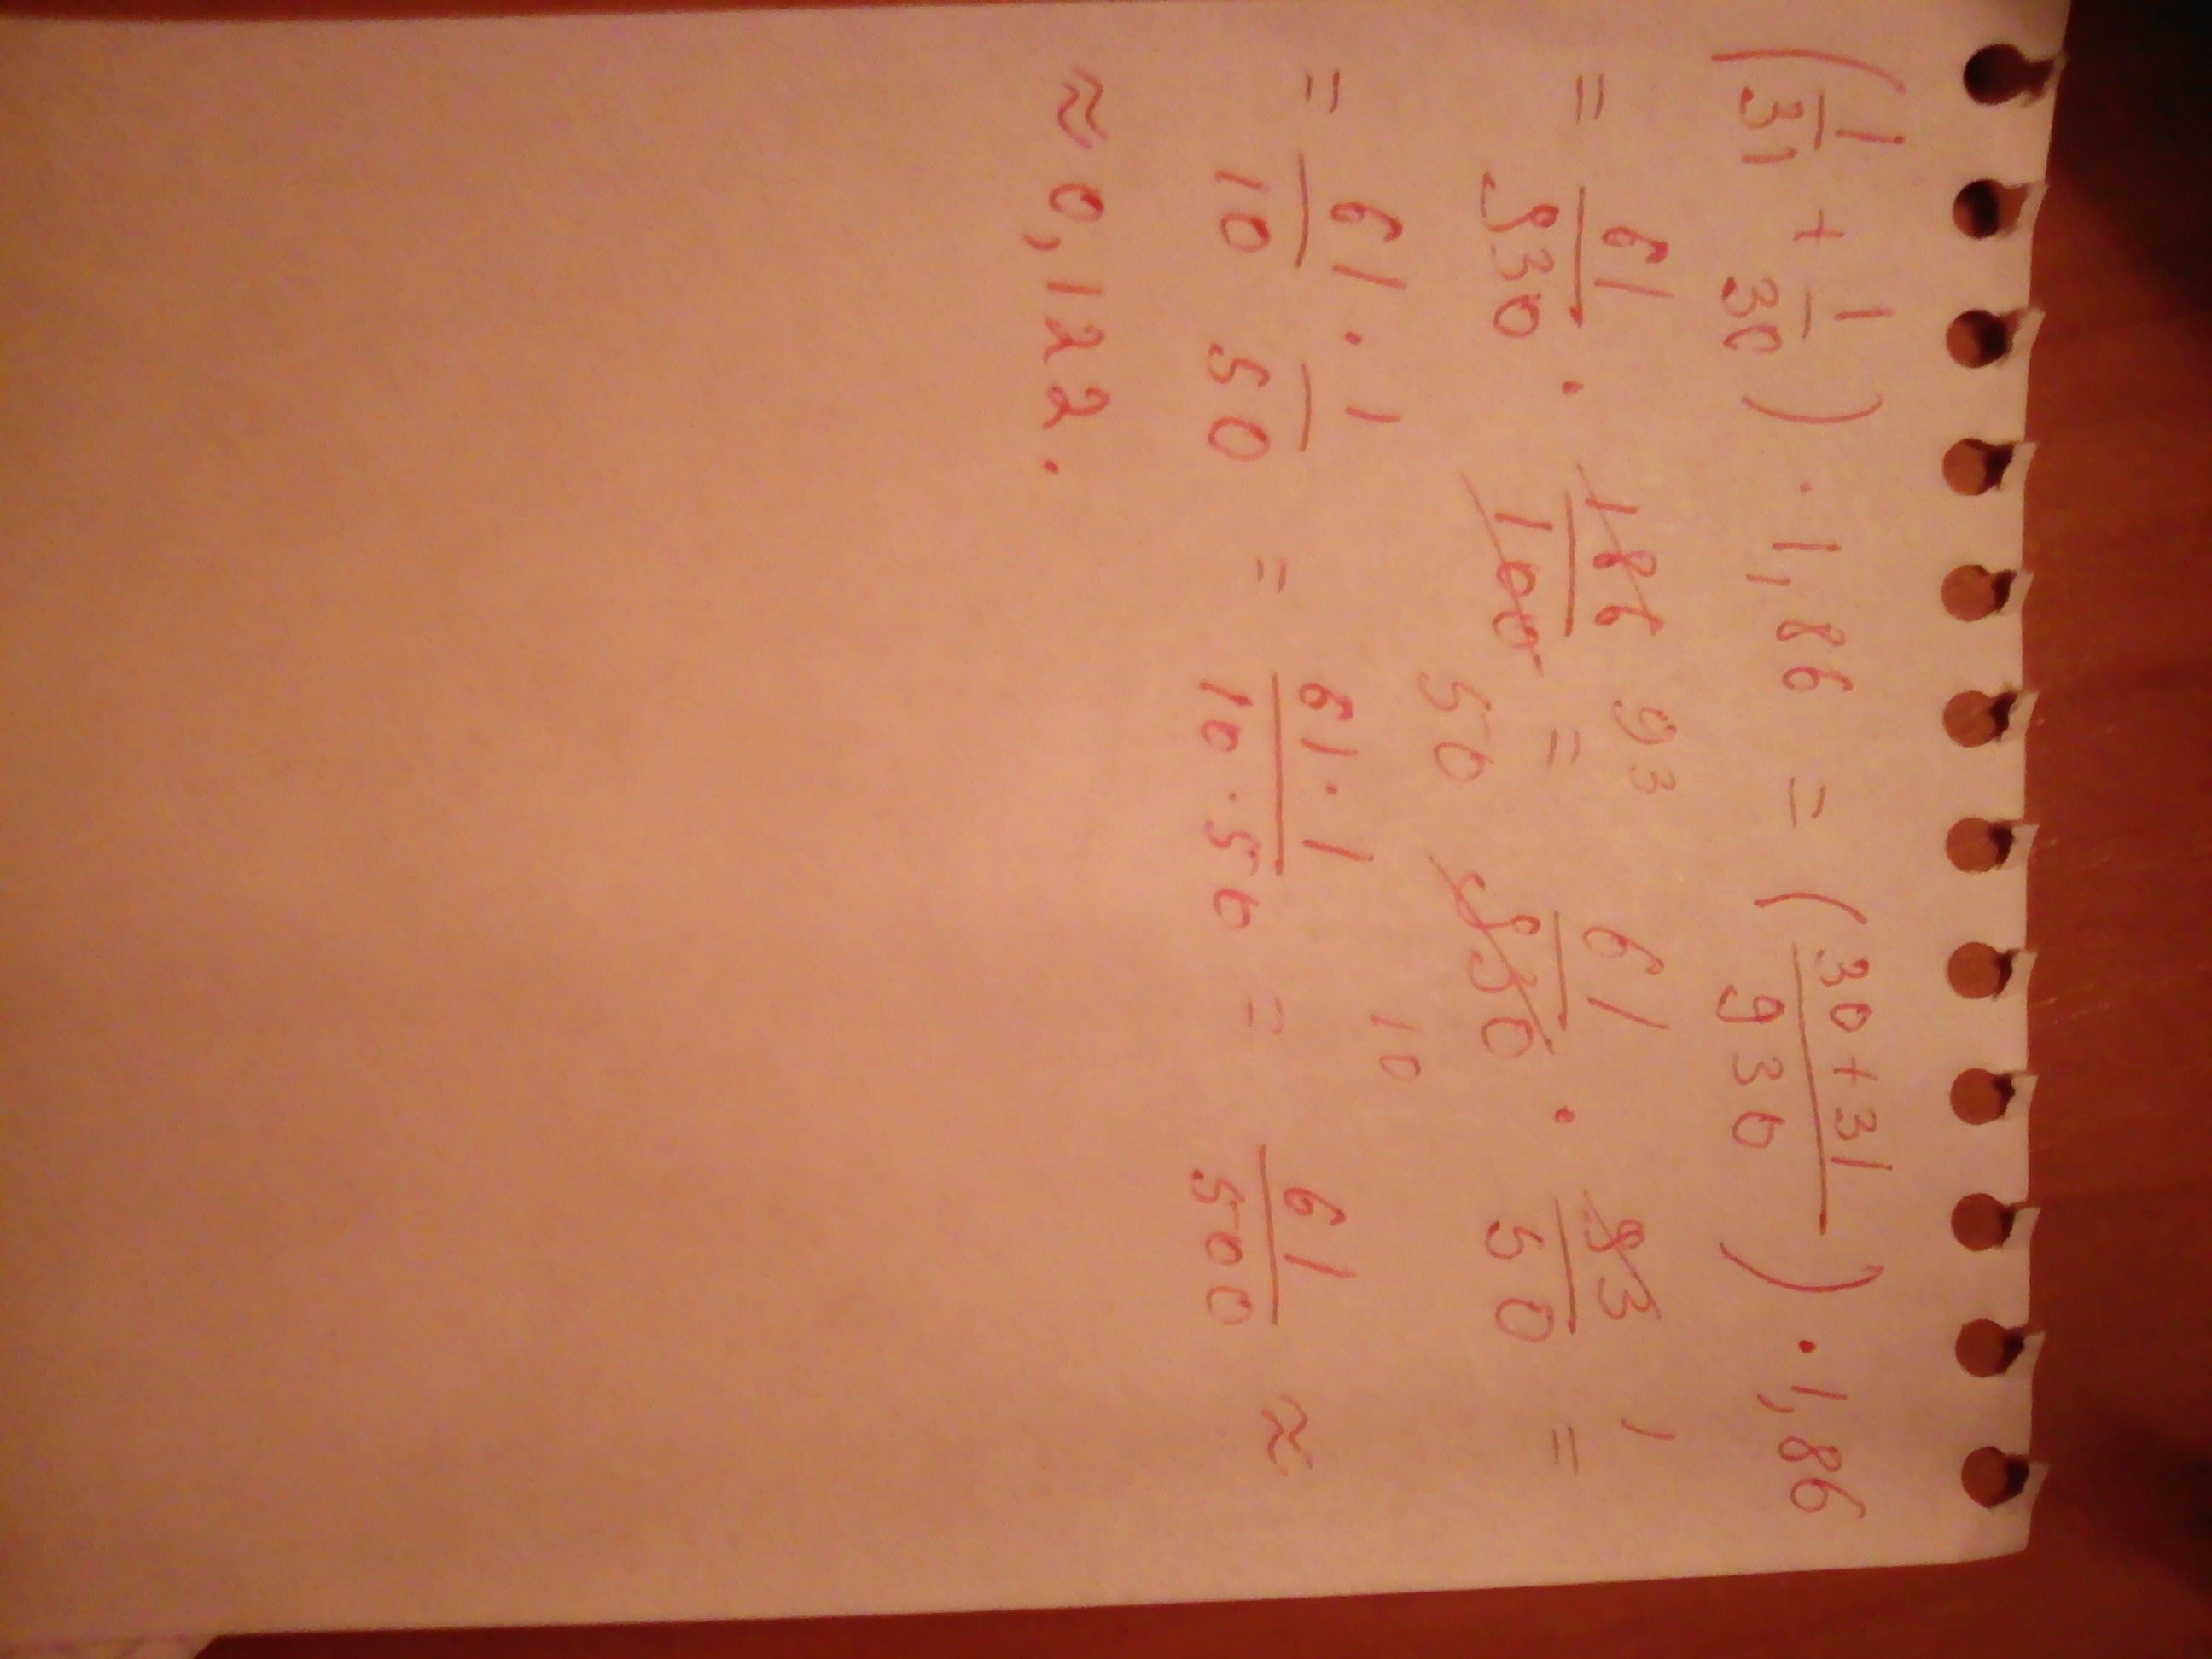 (1/31 + 1/30) · 1,86 = (30 + 31/930) · 1,86
= 61/930 · 186/100 93 50 = 61/930 10 · 93/50 1 =
= 61/10 · 1/50 = 61 · 1/10 · 50 = 61/500 ≈
≈ 0,122.